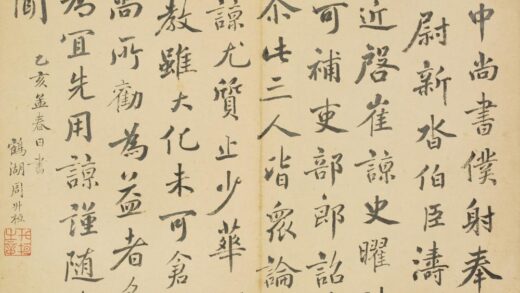 中尚書僕射奉
尉新沓伯臣濤
近啓崔諒史曜
可補吏部郎詔
尒此三人皆衆論
諒尤質止少華
教雖大化未可倉
尚所勸為益者
為宜先用諒謹随
聞
乙亥孟春日書
鶴湖周升桓